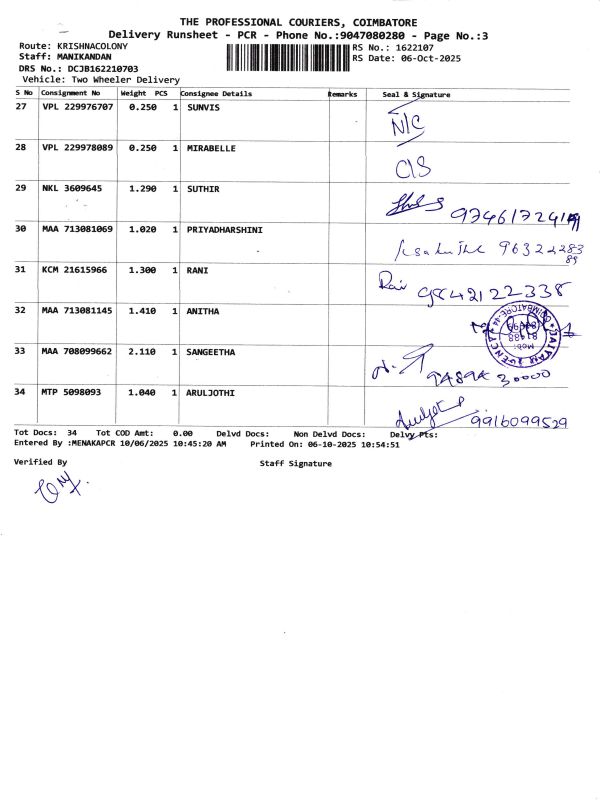 THE PROFESSIONAL COURIERS, COIMBATORE
Delivery Runsheet - PCR - Phone No.:9047080280 - Page No.:3
Route: KRISHNACOLONY RS No.: 1622107
Staff: MANIKANDAN RS Date: 06-Oct-2025
DRS No.: DCJB162210703
Vehicle: Two Wheeler Delivery
S No Consignment No Weight PCS Consignee Details Remarks Seal & Signature
27 VPL 229976707 0.250 1 SUNVIS N/C
28 VPL 229978089 0.250 1 MIRABELLE C/S
29 NKL 3609645 1.290 1 SUTHIR
30 MAA 713081069 1.020 1 PRIYADHARSHINI
31 KCM 21615966 1.300 1 RANI 9842122338
32 MAA 713081145 1.410 1 ANITHA
33 MAA 708099662 2.110 1 SANGEETHA
34 MTP 5098093 1.040 1 ARULJOTHI 9916099529
Tot Docs: 34 Tot COD Amt: 0.00 Delvd Docs: Non Delvd Docs: Delvy Pts:
Entered By :MENAKAPCR 10/06/2025 10:45:20 AM Printed On: 06-10-2025 10:54:51
Verified By Staff Signature